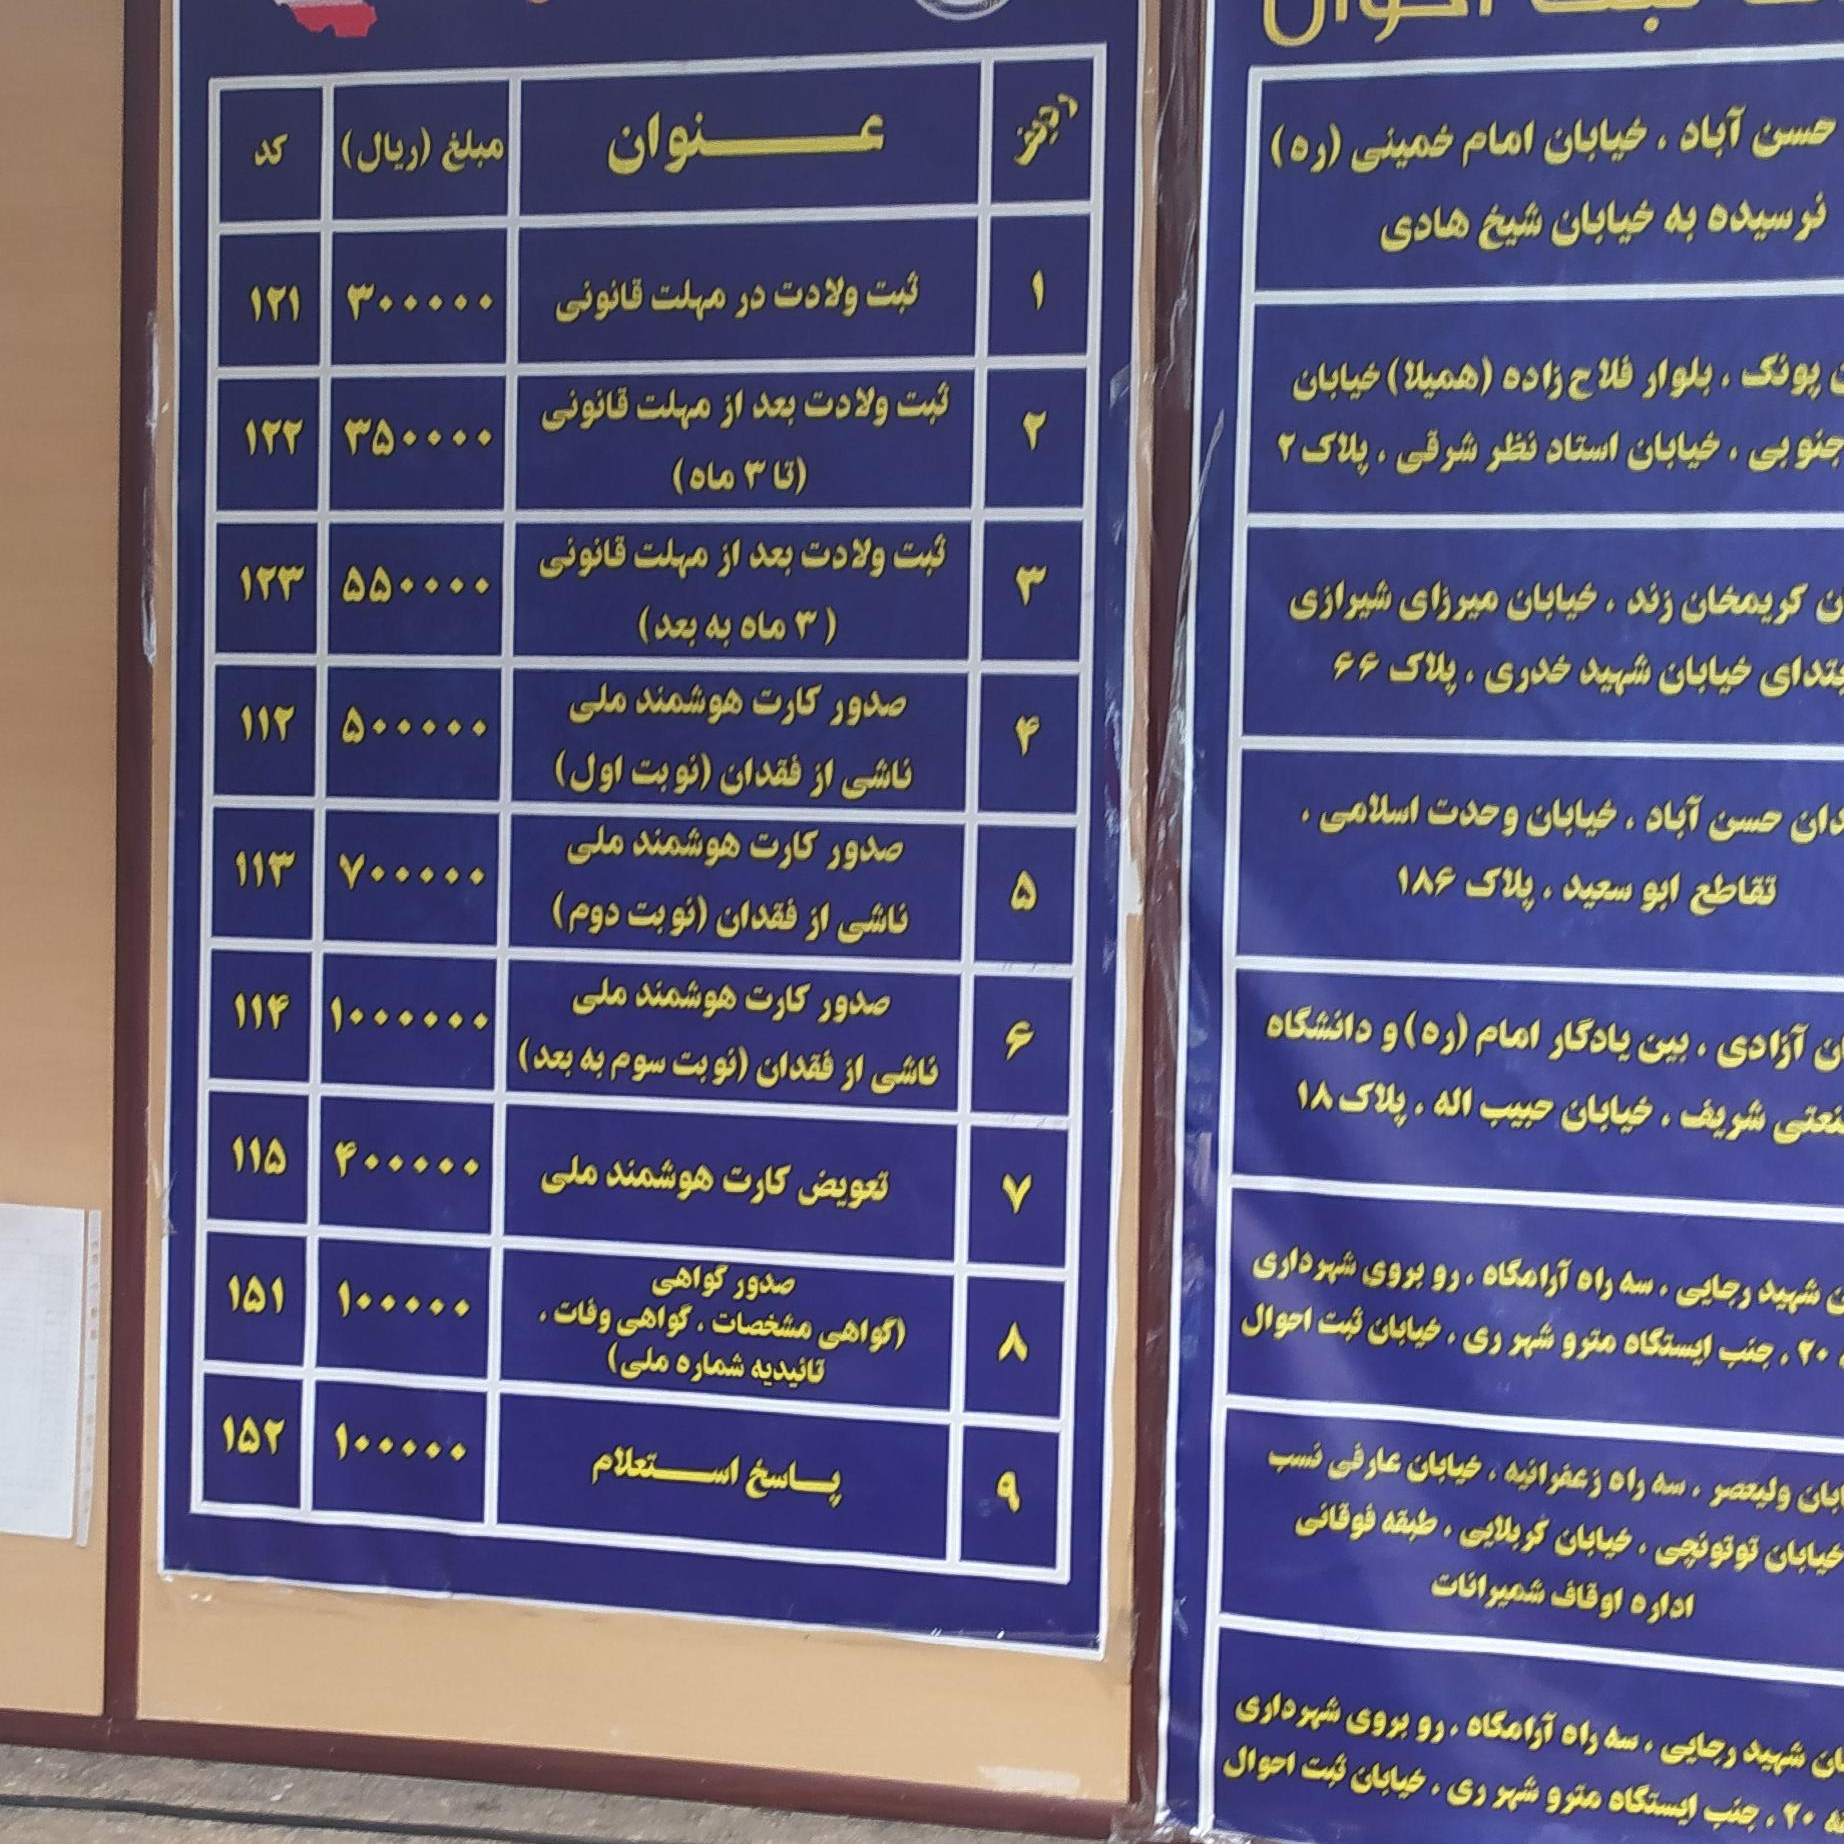 ردیف عنوان مبلغ (ریال) کد
۱ ثبت ولادت در مهلت قانونی ۳۰۰۰۰۰ ۱۲۱
۲ ثبت ولادت بعد از مهلت قانونی ۳۵۰۰۰۰ ۱۲۲
(تا ۳ ماه)
۳ ثبت ولادت بعد از مهلت قانونی ۵۵۰۰۰۰ ۱۲۳
(۳ ماه به بعد)
۴ صدور کارت هوشمند ملی ۵۰۰۰۰۰ ۱۱۲
ناشی از فقدان (نوبت اول)
۵ صدور کارت هوشمند ملی ۷۰۰۰۰۰ ۱۱۳
ناشی از فقدان (نوبت دوم)
۶ صدور کارت هوشمند ملی ۱۰۰۰۰۰۰ ۱۱۴
ناشی از فقدان (نوبت سوم به بعد)
۷ تعویض کارت هوشمند ملی ۴۰۰۰۰۰ ۱۱۵
۸ صدور گواهی ۱۰۰۰۰۰ ۱۵۱
(گواهی مشخصات ، گواهی وفات ،
تائیدیه شماره ملی)
۹ پاسخ استعلام ۱۰۰۰۰۰ ۱۵۲
ثبت احوال
حسن آباد ، خیابان امام خمینی (ره)
نرسیده به خیابان شیخ هادی
پونک ، بلوار فلاح زاده (همیلا) خیابان
جنوبی ، خیابان استاد نظر شرقی ، پلاک ۲
کریمخان زند ، خیابان میرزای شیرازی
خیابان شهید خدری ، پلاک ۶۶
حسن آباد ، خیابان وحدت اسلامی ،
تقاطع ابو سعید ، پلاک ۱۸۶
آزادی ، بین یادگار امام (ره) و دانشگاه
شریف ، خیابان حبیب اله ، پلاک ۱۸
شهید رجایی ، سه راه آرامگاه ، رو بروی شهرداری
۲۰ ، جنب ایستگاه مترو شهر ری ، خیابان ثبت احوال
ولیعصر ، سه راه زعفرانیه ، خیابان عارفی نسب
خیابان توتونچی ، خیابان کربلایی ، طبقه فوقانی
اداره اوقاف شمیرانات
شهید رجایی ، سه راه آرامگاه ، رو بروی شهرداری
۲۰ ، جنب ایستگاه مترو شهر ری ، خیابان ثبت احوال